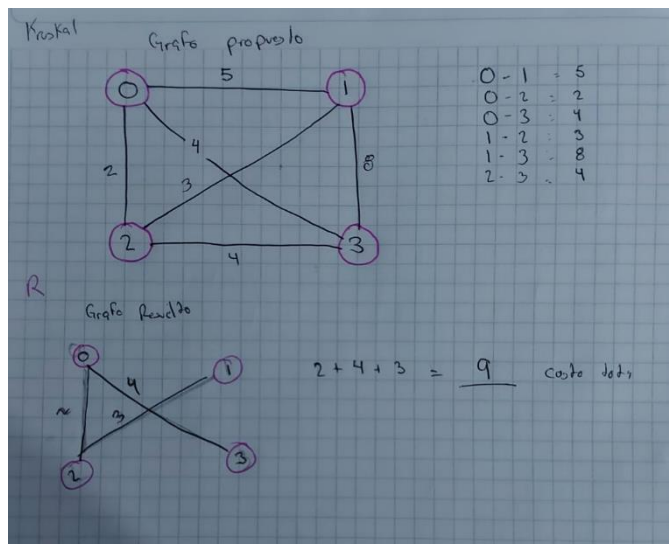 Kruskal
Grafo propuesto
5
0 1
4
2
3
8
2 3
4
0 - 1 = 5
0 - 2 = 2
0 - 3 = 4
1 - 2 = 3
1 - 3 = 8
2 - 3 = 4
R
Grafo Resuelto
0 1
4
2
3
2 3
2 + 4 + 3 = 9 costo total